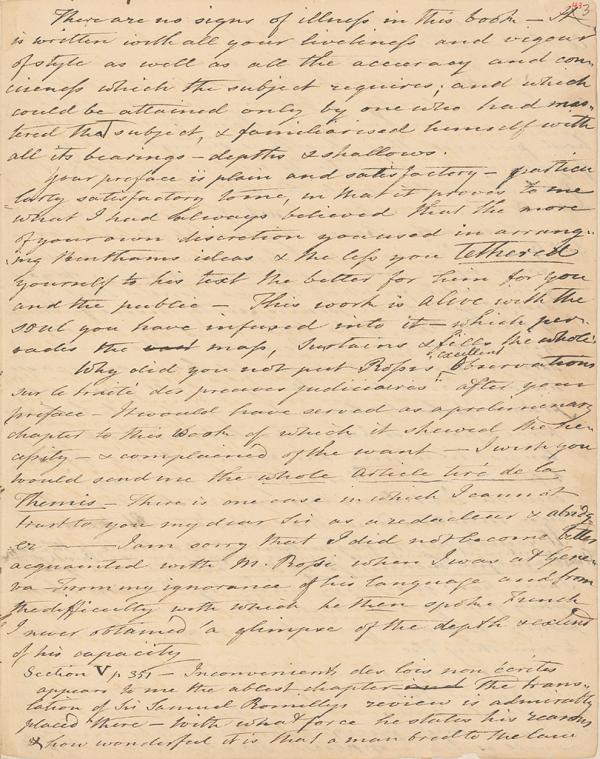 3
There are no signs of illness in this book – It
is written with all your liveliness and vigour
of style as well as all the accuracy and con-
ciseness which the subject requires, and which
could be attained only by one who had mas-
tered the subject, & familiarised himself with
all its bearings – depths & shallows.
Your preface is plain and satisfactory – particu
larly satisfactory to me, in that it proves to me
what I had always believed that the more
of your own discretion you used in arrang-
ing Benthams ideas & the less you tethered
yourself to his text the better for him for you
and the public – This work is alive with the
soul you have infused into it – which per-
vades the vast mass, sustains & fills the whole
Why did you not put Rossis excellent Observations
sur le traité des preuves judiciaires" after your
preface – It would have served as a preliminary
chapter to this Book of which it shewed the ne-
cessity – & complained of the want – I wish you
would send me the whole article tiré de la
Themis – There is one case in which I cannot
trust to you my dear Sir as a redacteur & abridg
er – I am sorry that I did not become better
acquainted with M. Rossi when I was at Gene-
va – From my ignorance of his language and from
the difficulty with which he then spoke French
I never obtained a glimpse of the depth & extent
of his capacity
Section V p. 351 – Inconvenients des lois non écrites
appears to me the ablest chapter and The trans-
lation of Sir Samuel Romillys review is admirably
placed there – with what force he states his reasons
& how wonderful it is that a man bred to the law